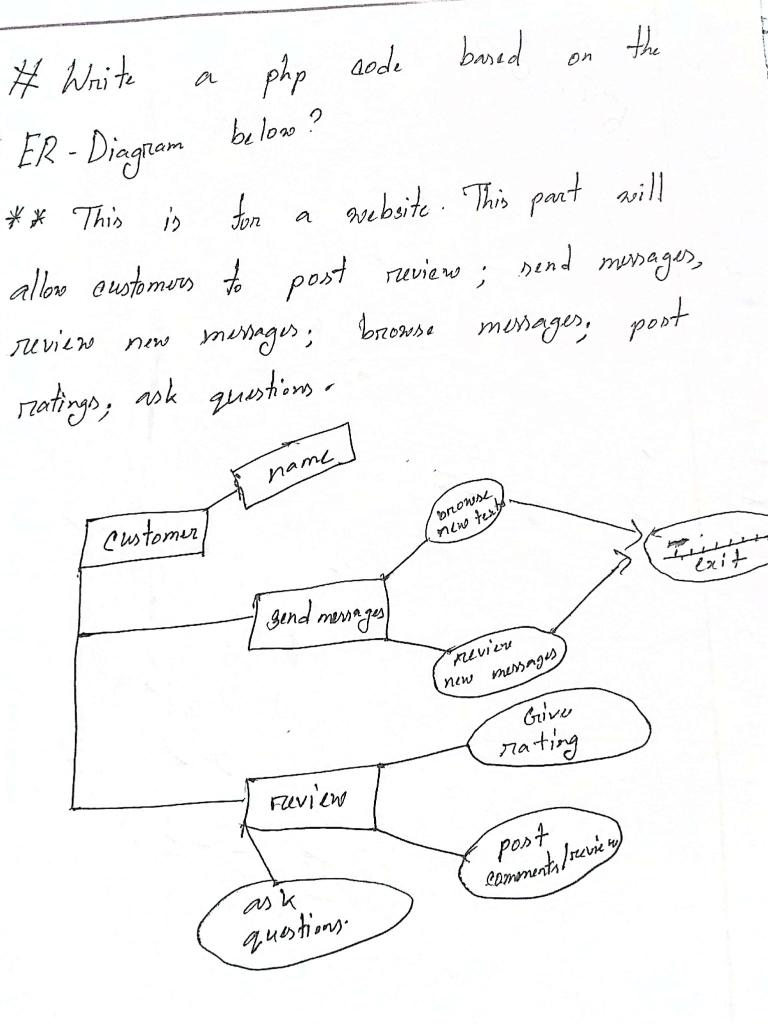 # Write a php code based on the
ER-Diagram below?
** This is for a website. This part will
allow customers to post review; send messages,
review new messages; browse messages; post
ratings; ask questions.
name
customer
browse
new texts
exit
send messages
review
new messages
Give
rating
review
post
comments/review
ask
questions.